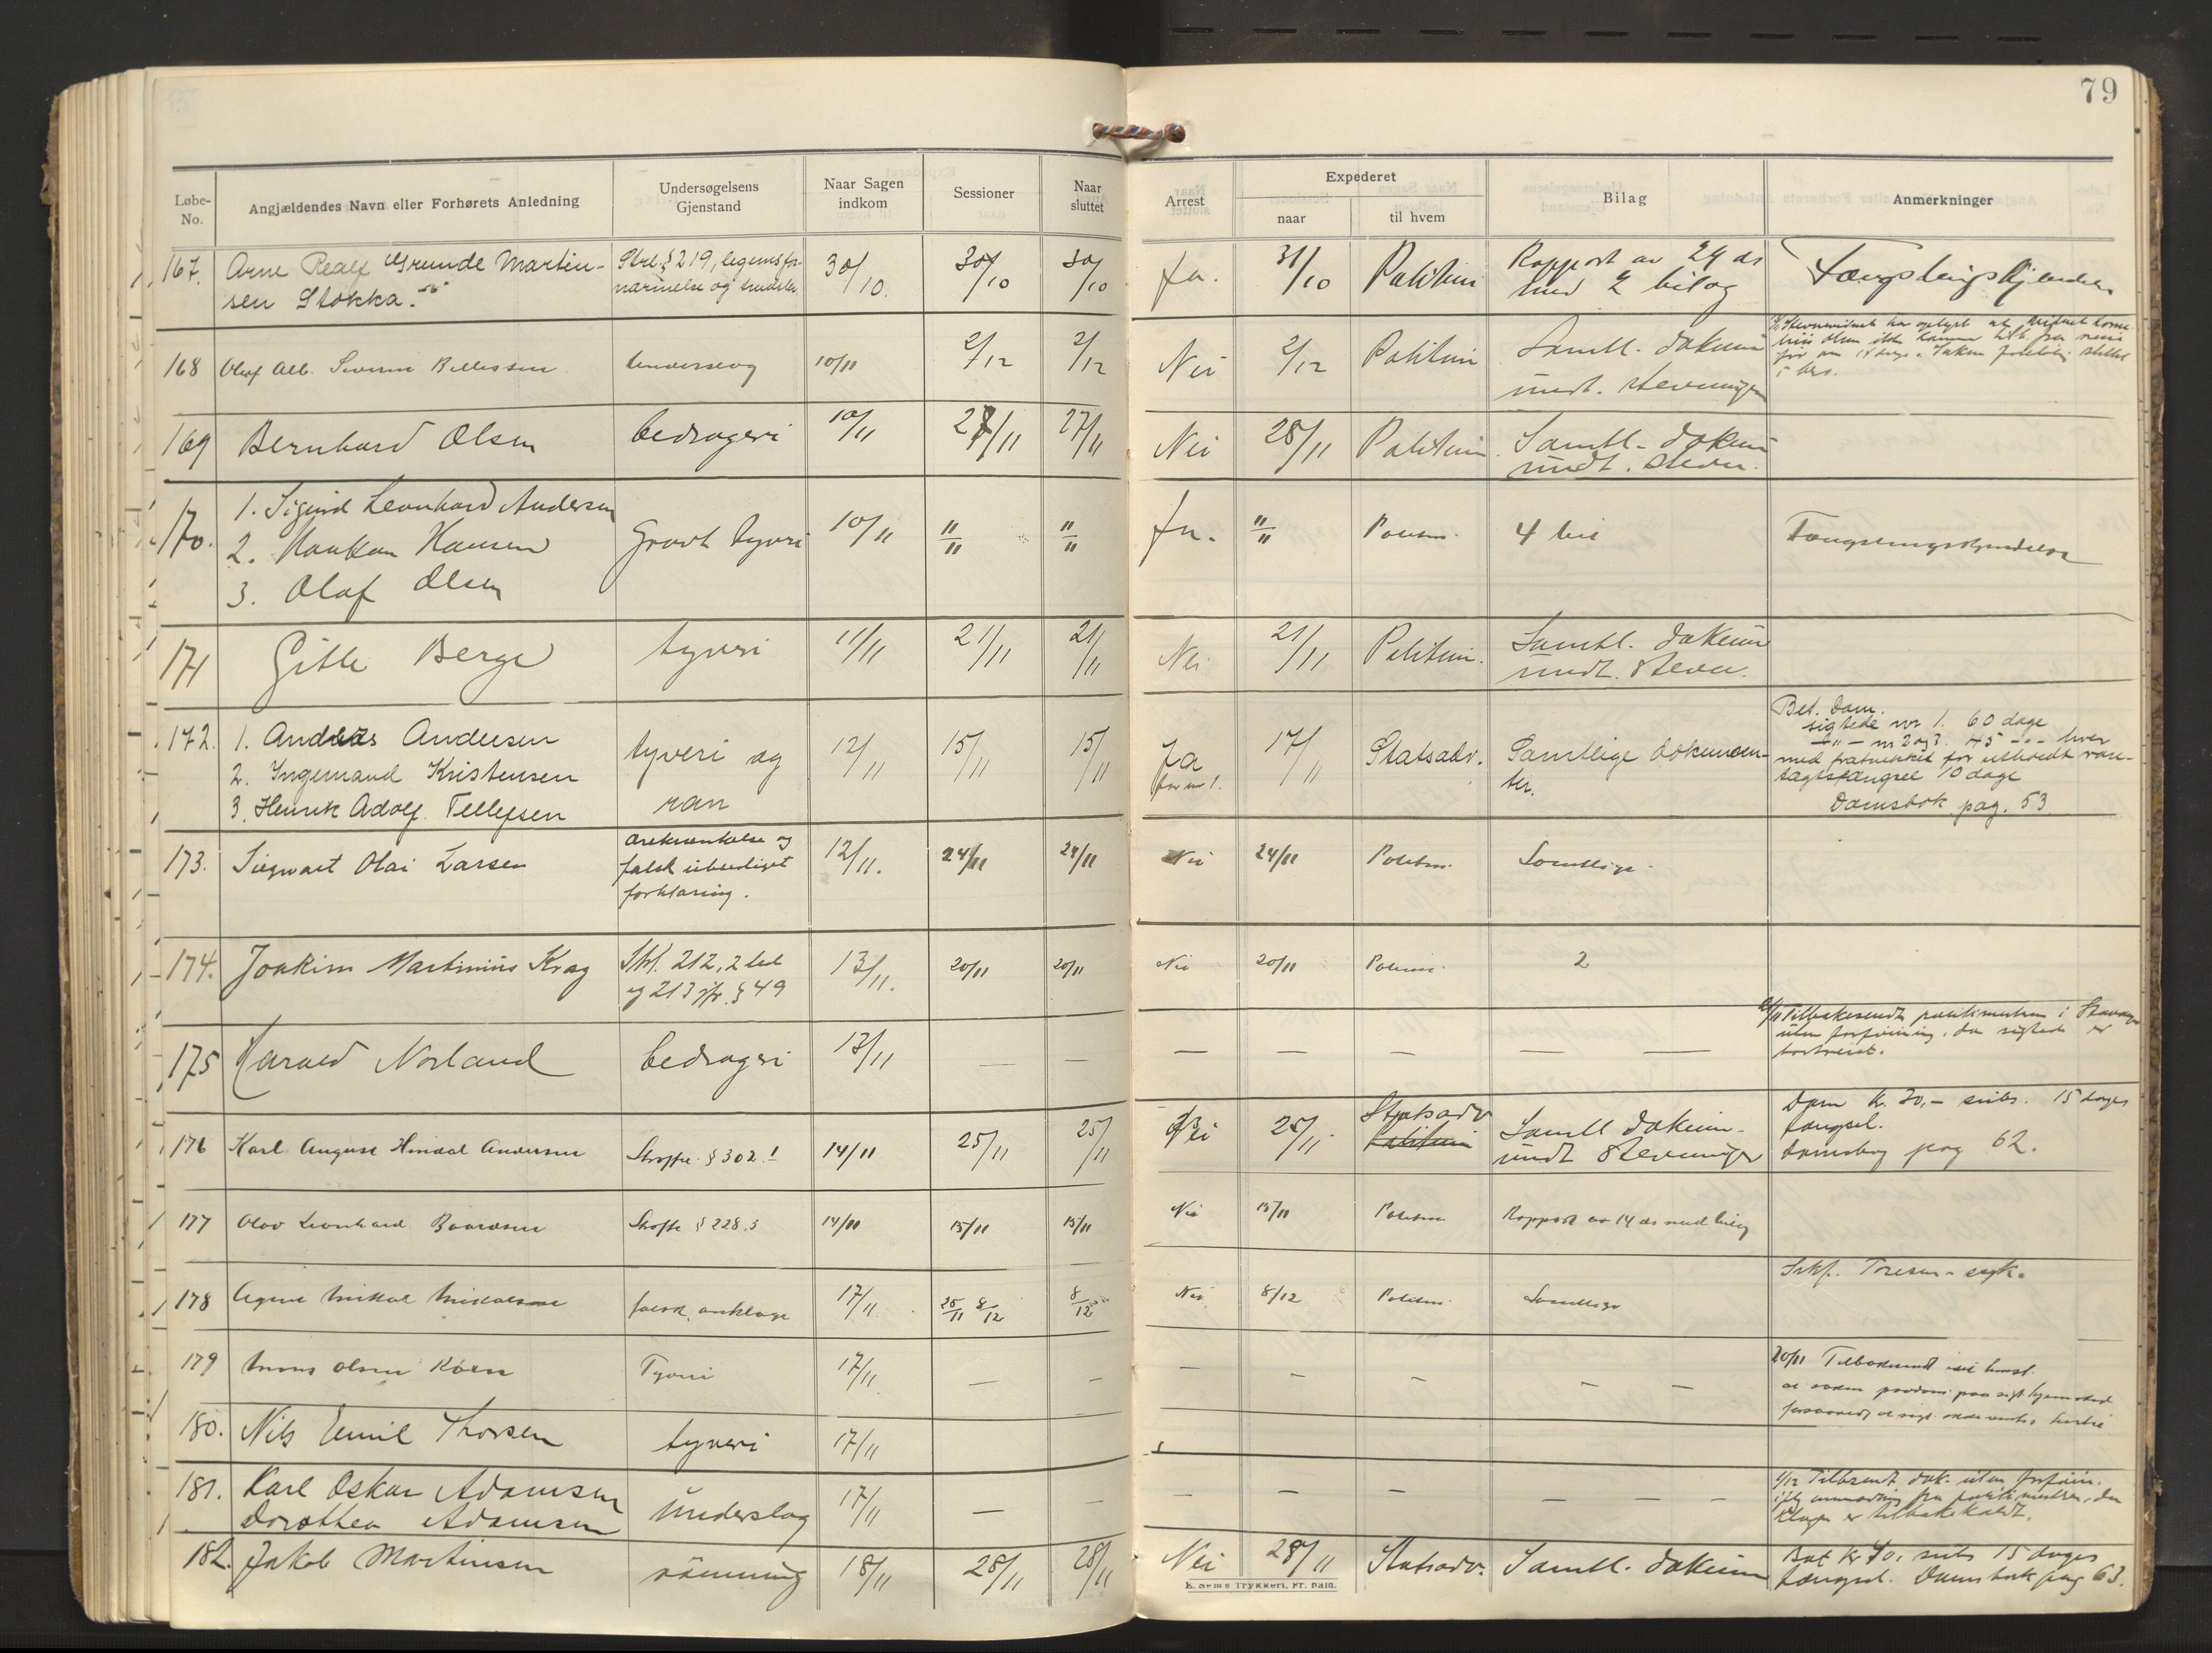 79
Løbe-No.
Angjældendes Navn eller Forhørets Anledning
Undersøgelsens Gjenstand
Naar Sagen indkom
Sessioner
Naar sluttet
Arrest
Expederet
naar
til hvem
Bilag
Anmerkninger
167. Arne Realf Grunde Martin- Strl. § 219, legemsfor- 30/10. 30/10 30/10 Ja. 31/10 Politim Rapport av 29 ds Fængslingskjendelse
sen Stokka. nærmelse og med 2 bilag
168 Olaf Alb. Severin Underslag 10/11 2/12 2/12 Nei 2/12 Politim Samtl. dokum
undt. stevninger
i bero.
169 Bernhard Olsen bedrageri 10/11 27/11 27/11 Nei 28/11 Politim Samtl. dokum
undt. stevn.
170. 1. Sigurd Leonhard Andersen Grovt tyveri 10/11 11/11 11/11 Ja. 11/11 Politim. 4 bil Fængslingskjendelse
2. Haakon Hansen
3. Olaf Olsen
171 Gitle Berge tyveri 11/11 21/11 21/11 Nei 21/11 Politim. Samtl. dokum
undt. stevn.
172. 1. Anders Andersen tyveri og 12/11 15/11 15/11 Ja 17/11 Statsadv. Samtlige dokumen- Bet. dom.
2. Ingemand Kristensen ran for nr 1. ter. sigtede nr 1. 60 dage
3. Henrik Adolf Tellefsen — " — nr 2 og 3. 45 — " — hver
med fradrag for utholdt vare-
tægtsfængsel 10 dage
Domsbok pag. 53
173. Siegwart Olai Larsen ærekrænkelse og 12/11. 24/11 24/11 Nei 24/11 Politim. Samtlige.
falsk forklaring.
174. Joakim Martinius Krag Strl. 212, 2 led 13/11. 20/11 20/11 Nei 20/11 Politim. 2
og 213 jfr. § 49
175 Harald Norland bedrageri 13/11 — — — — — — — Tilbakesendt politimestren i Stavanger
uten forføining, da sigtede er
bortreist.
176 Karl August Andersen Straffel. § 302.1 14/11 25/11 25/11 Nei 25/11. Statsadv Samtl dokum. Dom kr. 30,- subs. 15 dages
Politim undt stevninger fængsel.
Domsbog pag 62.
177 Olav Leonhard Baardsen Straffel § 228.3 14/11 15/11 15/11 Nei 15/11 Politim Rapport av 14 ds med bilag
178 Mikal falsk anklage 17/11. 25/11 8/12 8/12 Nei 8/12 Politim. Samtlige
179 Olsen Tyveri 17/11 — — — — — — — 20/11
180. Nils Emil Thorsen tyveri 17/11
181. Karl Oskar Adamsen Underslag 17/11 — — — — — — — 1/12 Tilbsendt dok. uten forføin.
Dorothea Adamsen ifølg anmodning fra politimestren, da
klagen er tilbakekaldt.
182. Jakob Martinsen rømning 18/11 28/11 28/11 Nei 28/11 Statsadv. Samtl. dokum Bot kr 40, subs 15 dages
fængsel. Domsbok pag 63.
E. Sems Trykkeri, Fr.hald.